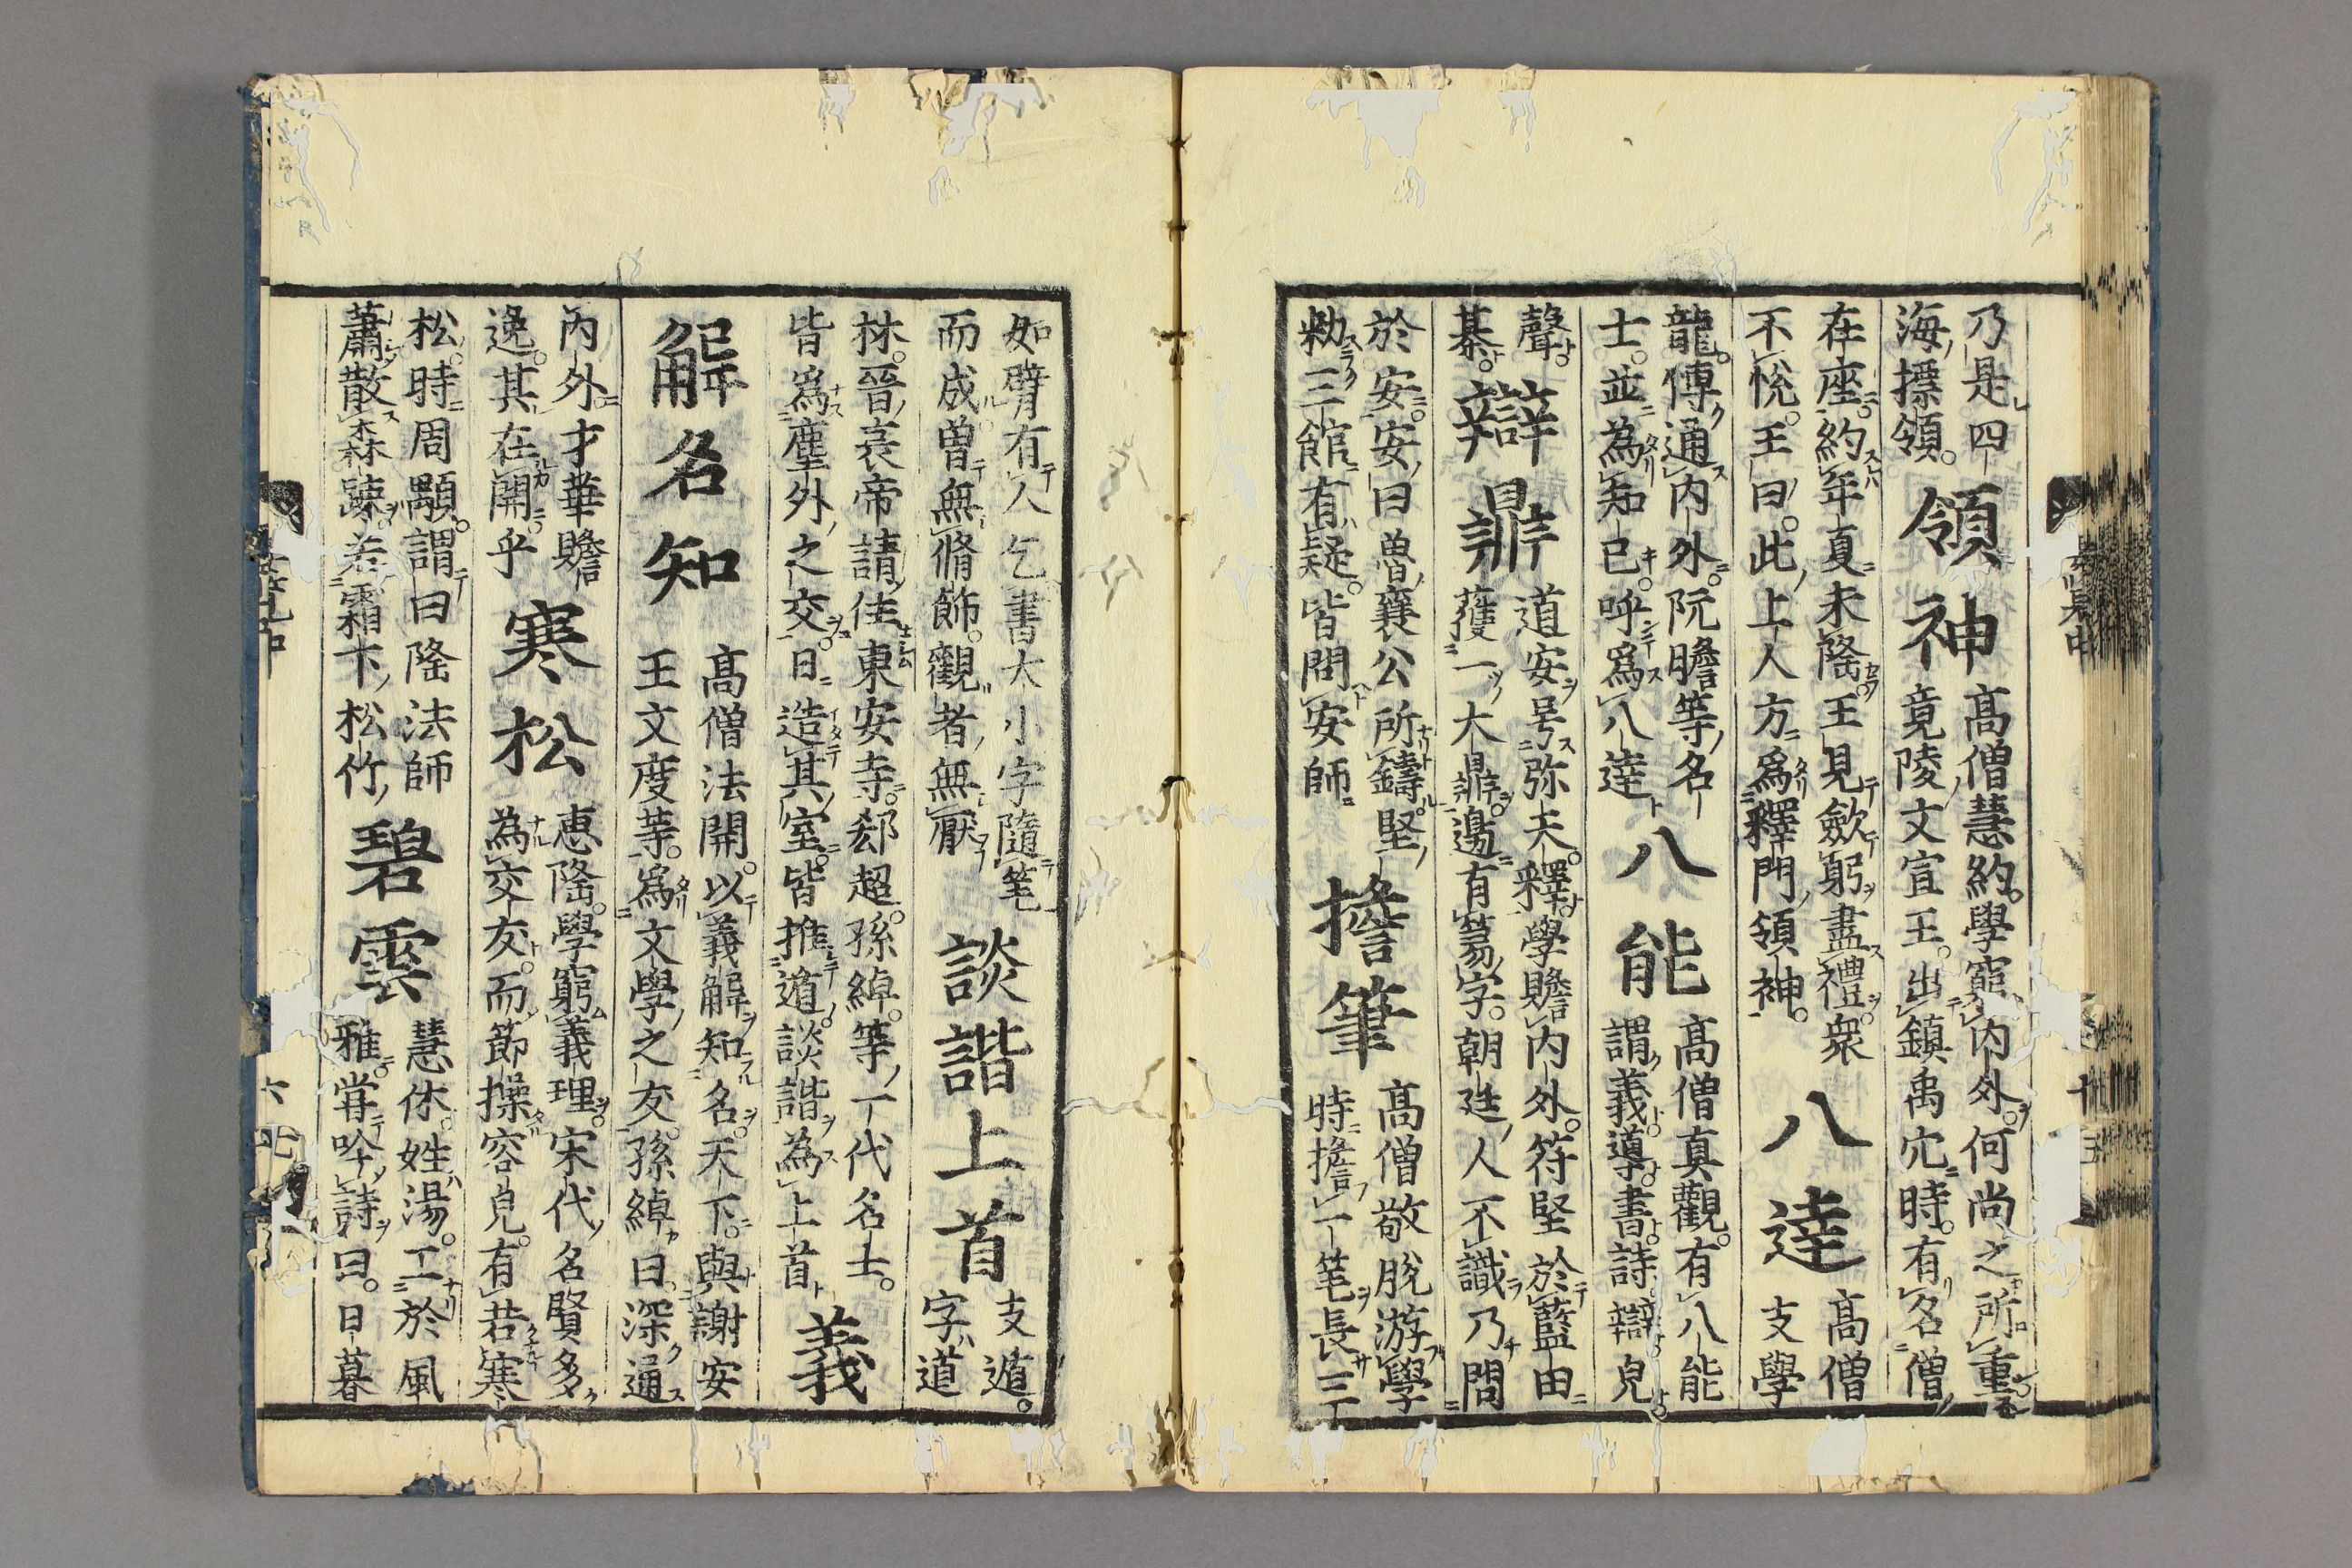 乃是四
海摽領。
領神
高僧慧約。學窮內外。何尚之所重
竟陵文宣王。出鎮禹穴。時有名僧
在座。約年夏未隆。王見歛躬盡禮。衆
不悅。王曰。此上人方爲釋門領神。
八達
高僧
支學
龍傳通內外。阮瞻等名
士。並為知已。呼爲八達
八能
高僧真觀。有八能
謂義導書詩辯皃
聲
棊。
辯鼎
道安号弥天。釋學贍內外。符堅於藍田
獲一大鼎。邊有篆字。朝廷人不識乃問
於安。安曰魯襄公所鑄。堅
勑三館有疑。皆問安師
擔筆
高僧敬脫游學
時擔一笔長三丁
如臂有人乞書大小字隨笔
而成曾無脩飾。觀者無厭
談諧上首
支遁。
字道
林。晉哀帝請住東安寺。郄超。孫綽。等一代名士。
皆爲塵外之交。日造其室。皆推遁談諧為上首
義
解名知
高僧法開。以義解知名。天下。與謝安
王文度等。爲文學之友。孫綽曰。深通
內外才華贍
逸。其在開乎
寒松
恵隆。學窮義理。宋代名賢多
為交友。而節操容皃。有若寒
松。時周顒。謂曰隆法師
蕭散森踈。若霜下松竹
碧雲
慧休。姓湯。工於風
雅甞吟詩曰。日暮